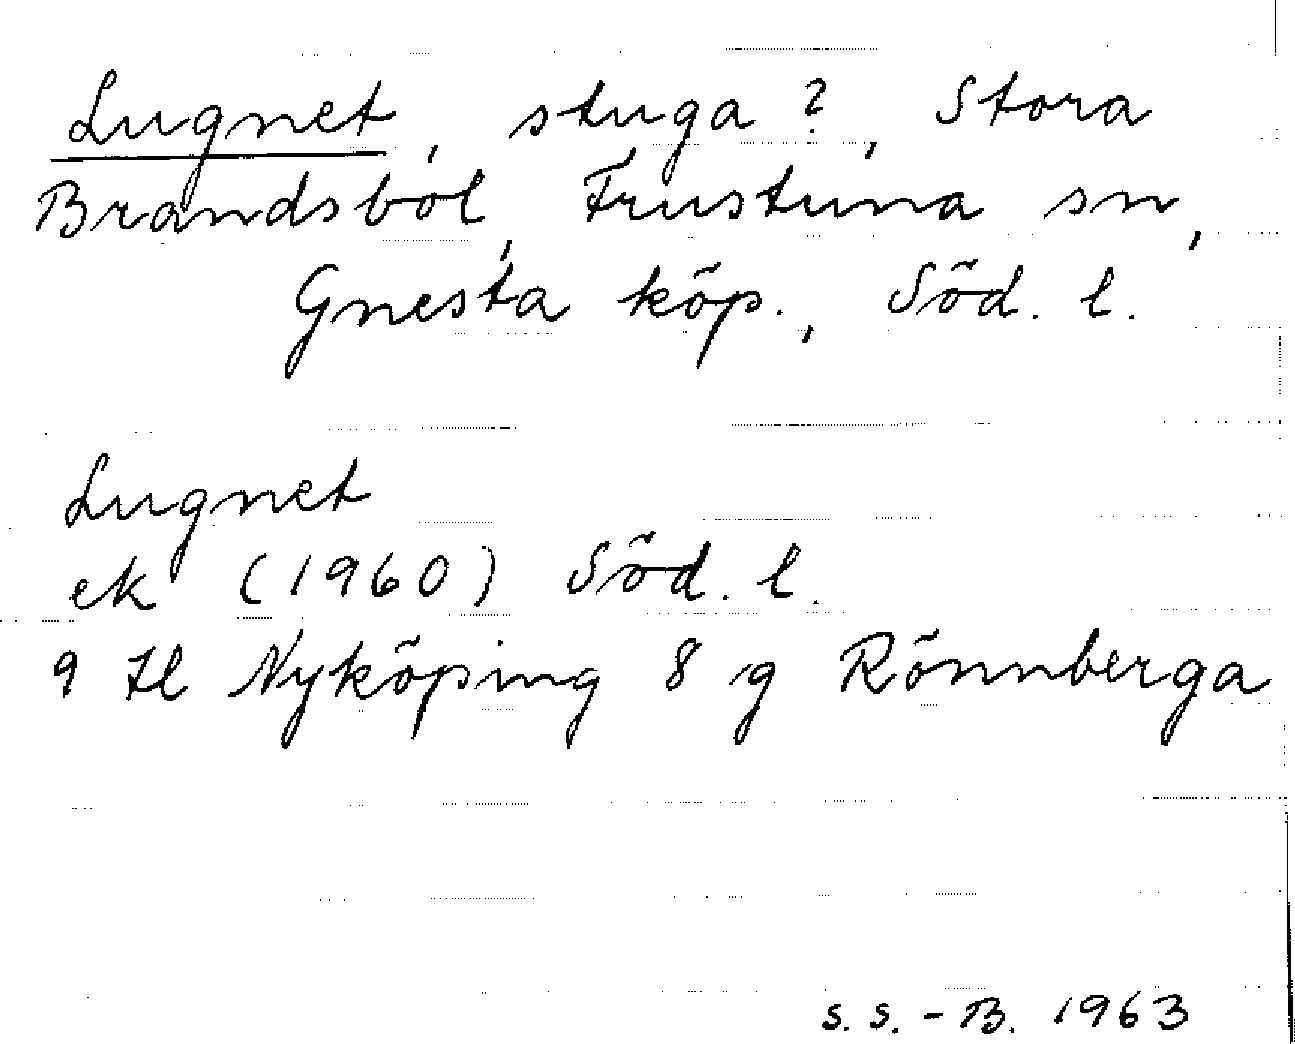 Lugnet, stuga?, Stora
Brandsbol, Frustuna sn,
Gnesta köp., Söd. l.
Lugnet
ek (1960) Söd. l.
9 H Nyköping 8 g Rönnberga
s. s. - B. 1963